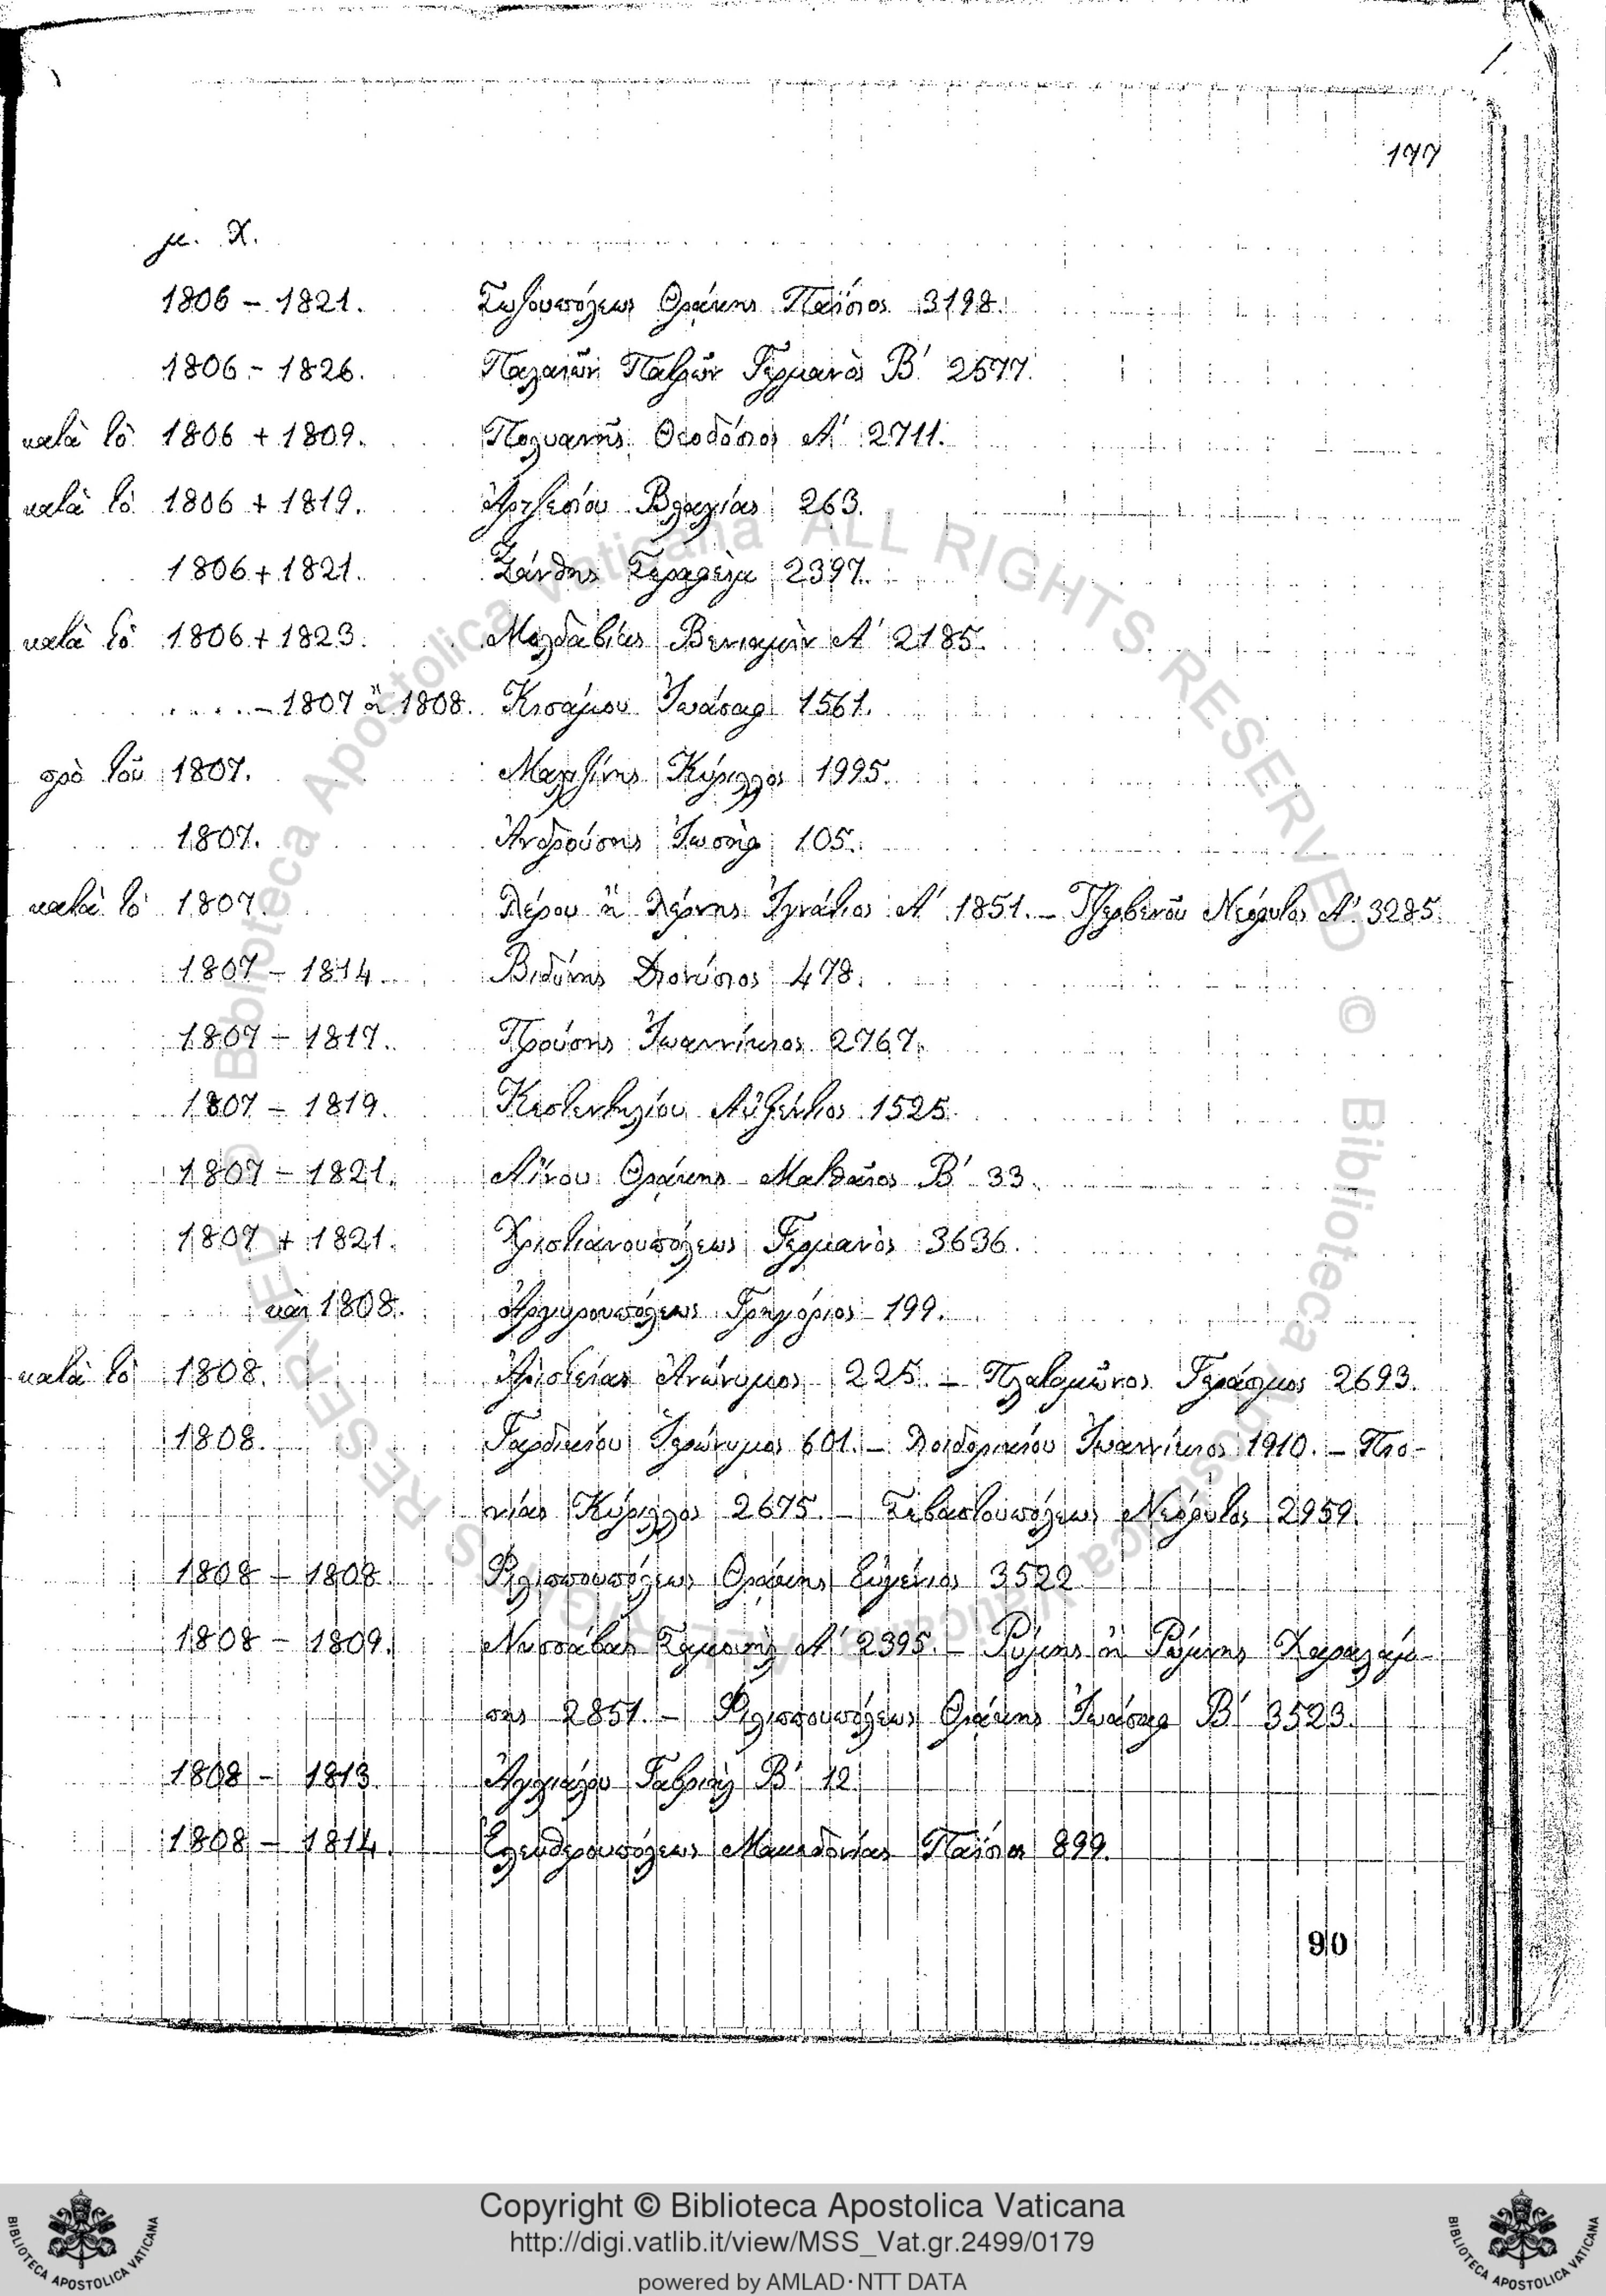 177
μ. Χ.
1806 – 1821. Σωζουπόλεως Θράκης Παΐσιος 3198.
1806 – 1826. Παλαιῶν Πατρῶν Γερμανὸς Β' 2577.
κατὰ τὸ 1806 + 1809. Πολυανῆς Θεοδόσιος Α' 2711.
κατὰ τὸ 1806 + 1819. Ἀρτζεσίου Βλαχίας 263.
1806 + 1821. Ξάνθης Σεραφεὶμ 2397.
κατὰ τὸ 1806 + 1823. Μολδαβίας Βενιαμὶν Α' 2185.
..... – 1807 ἢ 1808. Κισάμου Ἰωάσαφ 1561.
πρὸ τοῦ 1807. Μαλτζίνης Κύριλλος 1995.
1807. Ἀνδρούσης Ἰωσὴφ 105.
κατὰ τὸ 1807. Λέρου ἢ Λέρνης Ἰγνάτιος Α' 1851. – Τζερβενοῦ Νεόφυτος Α' 3285.
1807 – 1814. Βιδύνης Διονύσιος 478.
1807 – 1817. Προύσης Ἰωαννίκιος 2767.
1807 – 1819. Κεστεντηλίου Αὐξέντιος 1525.
1807 – 1821. Αἴνου Θράκης Ματθαῖος Β' 33.
1807 + 1821. Χριστιανουπόλεως Γερμανὸς 3636.
καὶ 1808. Ἀργυρουπόλεως Γρηγόριος 199.
κατὰ τὸ 1808. Ἀριστείας Ἀνώνυμος 225. – Πλαταμῶνος Γεράσιμος 2693.
1808. Γαρδικίου Ἱερώνυμος 601. – Λοιδορικίου Ἰωαννίκιος 1910. – Πιο-
νίας Κύριλλος 2675. – Σεβαστουπόλεως Νεόφυτος 2959.
1808 – 1808. Φιλιππουπόλεως Θράκης Εὐγένιος 3522
1808 – 1809. Νυσσάβας Σαμουὴλ Α' 2395. – Χαραλάμπ-
ης 2851. – Φιλιππουπόλεως Θράκης Ἰωάσαφ Β' 3523.
1808 – 1813. Ἀγχιάλου Γαβριὴλ Β' 12.
1808 – 1814. Ἐλευθερουπόλεως Μακεδονίας Παΐσιος 899.
90
Copyright © Biblioteca Apostolica Vaticana
http://digi.vatlib.it/view/MSS_Vat.gr.2499/0179
powered by AMLAD·NTT DATA
BIBLIOTECA APOSTOLICA VATICANA
BIBLIOTECA APOSTOLICA VATICANA
© Biblioteca Apostolica Vaticana ALL RIGHTS RESERVED
© Biblioteca Apostolica Vaticana ALL RIGHTS RESERVED